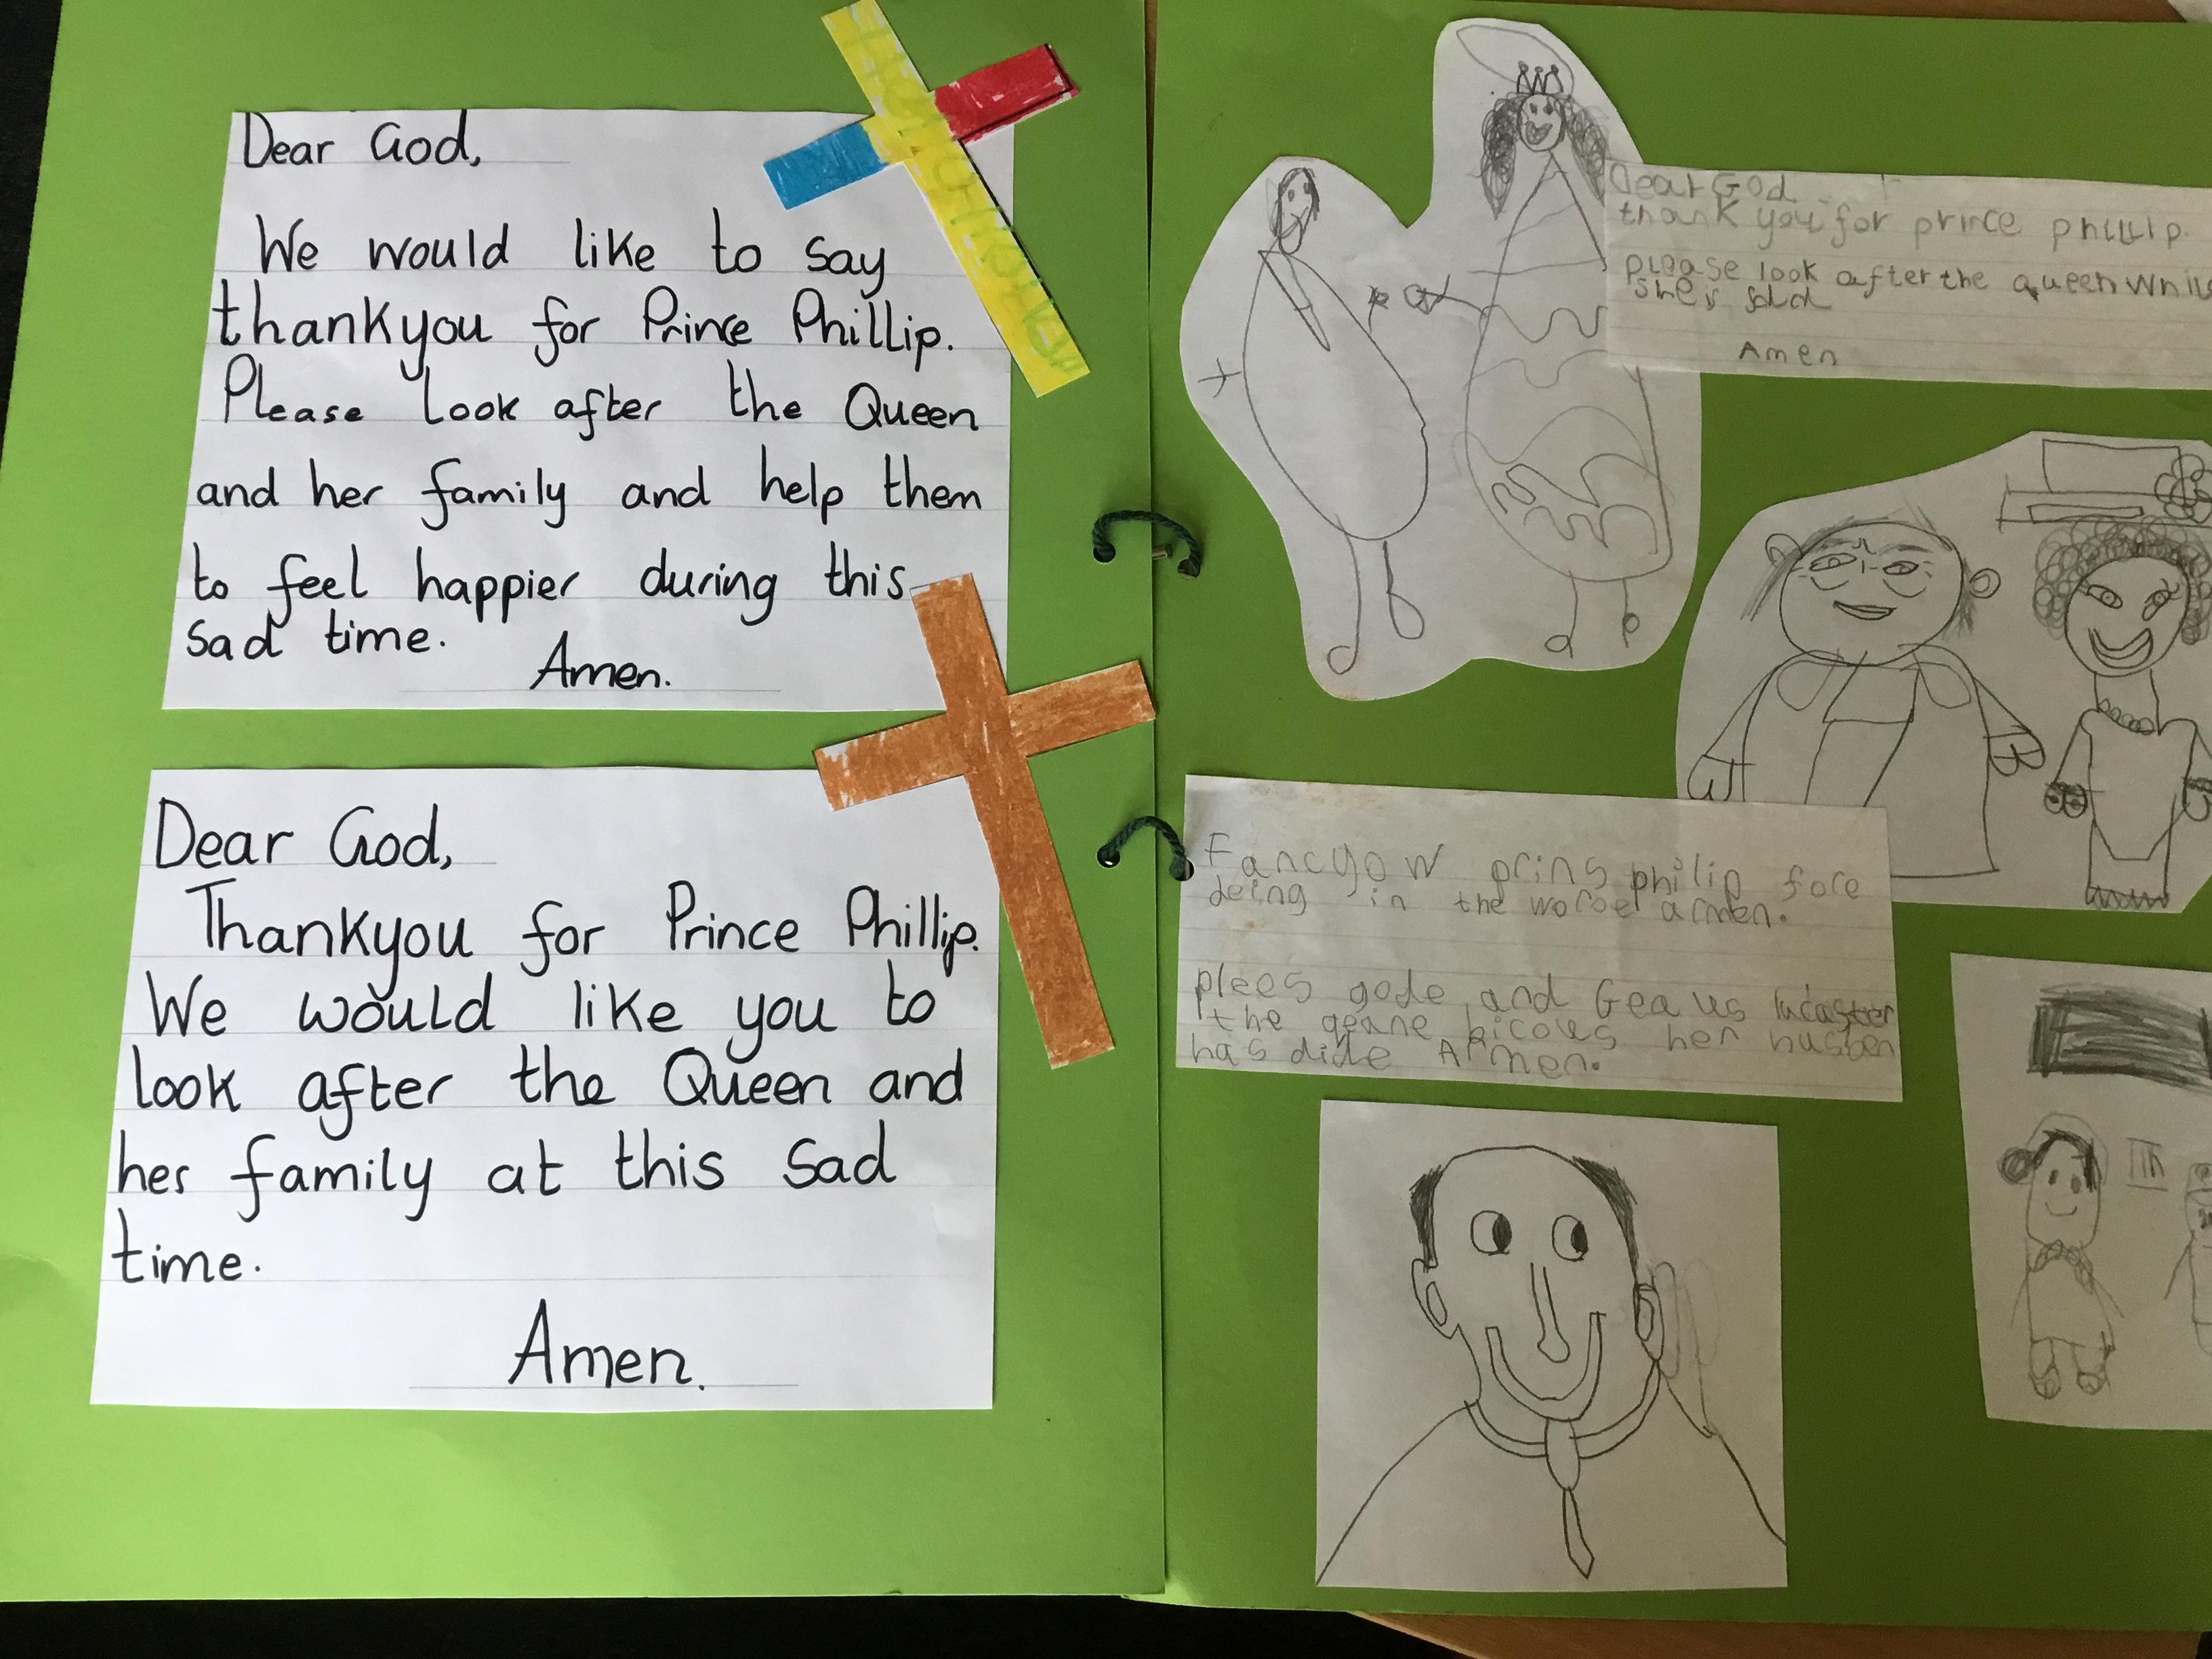 Dear God,
We would like to say
thankyou for Prince Phillip.
Please look after the Queen
and her family and help them
to feel happier during this
sad time.
Amen.
Dear God,
Thankyou for Prince Phillip.
We would like you to
look after the Queen and
her family at this sad
time.
Amen.
Dear God
thank you for prince phillip.
please look after the queen
she's sad
Amen
Fancyow prins philip fore
deing in the worpe armen.
plees gode and Gea us
the qeane bicous her husben
has dide Armen.